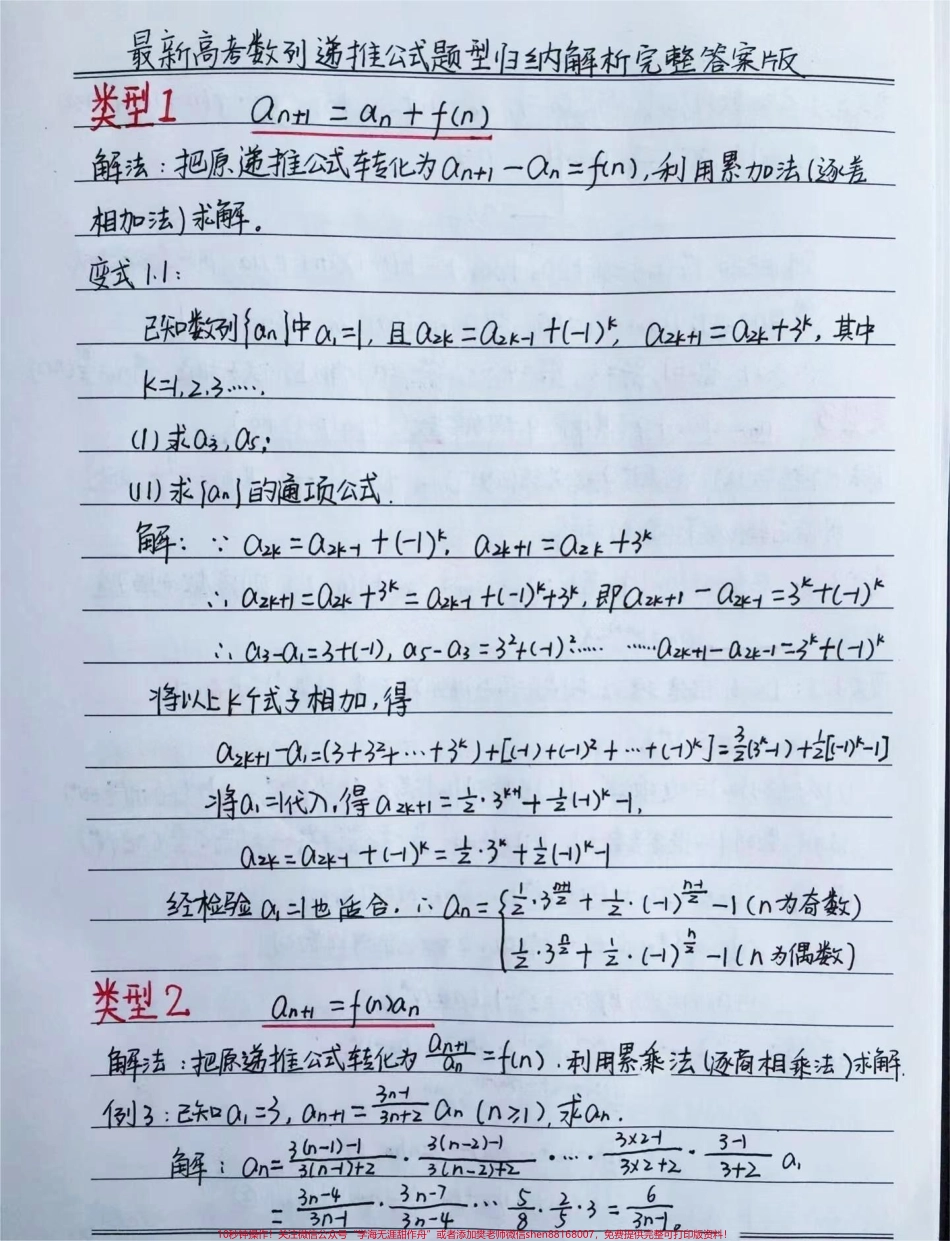 最新高考数列递推公式题型归纳解析完整答案版
类型1 aₙ₊₁ = aₙ + f(n)
解法：把原递推公式转化为aₙ₊₁－aₙ=f(n)，利用累加法(逐差
相加法)求解。
变式1.1：
已知数列{aₙ}中a₁=1，且a₂ₖ=a₂ₖ₋₁+(-1)ᵏ，a₂ₖ₊₁=a₂ₖ+3ᵏ，其中
k=1,2,3…….
(I)求a₃,a₅；
(II)求{aₙ}的通项公式.
解：∵ a₂ₖ=a₂ₖ₋₁+(-1)ᵏ，a₂ₖ₊₁=a₂ₖ+3ᵏ
∴ a₂ₖ₊₁=a₂ₖ+3ᵏ=a₂ₖ₋₁+(-1)ᵏ+3ᵏ，即a₂ₖ₊₁－a₂ₖ₋₁=3ᵏ+(-1)ᵏ
∴ a₃-a₁=3+(-1)，a₅-a₃=3²+(-1)²…… ……a₂ₖ₊₁-a₂ₖ₋₁=3ᵏ+(-1)ᵏ
将以上k个式子相加，得
a₂ₖ₊₁-a₁=(3+3²+…+3ᵏ)+[(-1)+(-1)²+…+(-1)ᵏ]=3/2(3ᵏ-1)+1/2[(-1)ᵏ-1]
将a₁=1代入，得a₂ₖ₊₁=1/2·3ᵏ⁺¹+1/2(-1)ᵏ-1，
a₂ₖ=a₂ₖ₋₁+(-1)ᵏ=1/2·3ᵏ+1/2(-1)ᵏ-1
经检验a₁=1也适合.∴aₙ={1/2·3^((n+1)/2)+1/2·(-1)^((n-1)/2)-1(n为奇数)
1/2·3^(n/2)+1/2·(-1)^(n/2)-1(n为偶数)
类型2 aₙ₊₁=f(n)aₙ
解法：把原递推公式转化为aₙ₊₁/aₙ=f(n).利用累乘法(逐商相乘法)求解.
例3：已知a₁=3，aₙ₊₁=(3n-1)/(3n+2) aₙ (n≥1)，求aₙ.
解：aₙ=(3(n-1)-1)/(3(n-1)+2)·(3(n-2)-1)/(3(n-2)+2)·…·(3×2-1)/(3×2+2)·(3-1)/(3+2) a₁
=(3n-4)/(3n-1)·(3n-7)/(3n-4)…5/8·2/5·3=6/(3n-1)。
10秒钟操作！关注微信公众号“学海无涯甜作舟”或者添加樊老师微信shen88168007，免费提供完整可打印版资料！